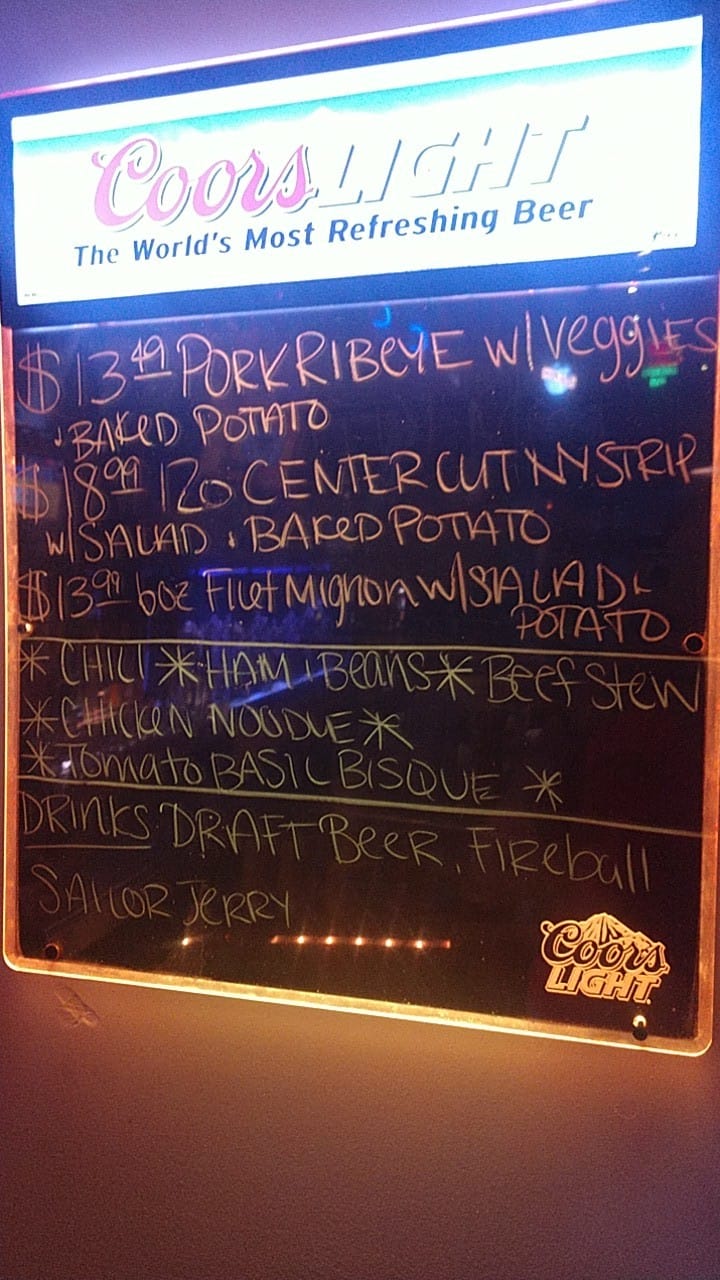 Coors LIGHT
The World's Most Refreshing Beer
$13.49 PORK RIBEYE W/VEGGIES
& BAKED POTATO
$18.99 12o CENTER CUT NY STRIP
W/SALAD & BAKED POTATO
$13.99 6oz Filet Mignon W/SALAD &
POTATO
* CHILI * HAM & Beans * Beef Stew
* CHICKEN NOODLE *
* Tomato BASIL BISQUE *
DRINKS DRAFT Beer, Fireball
SAILOR JERRY
Coors
LIGHT